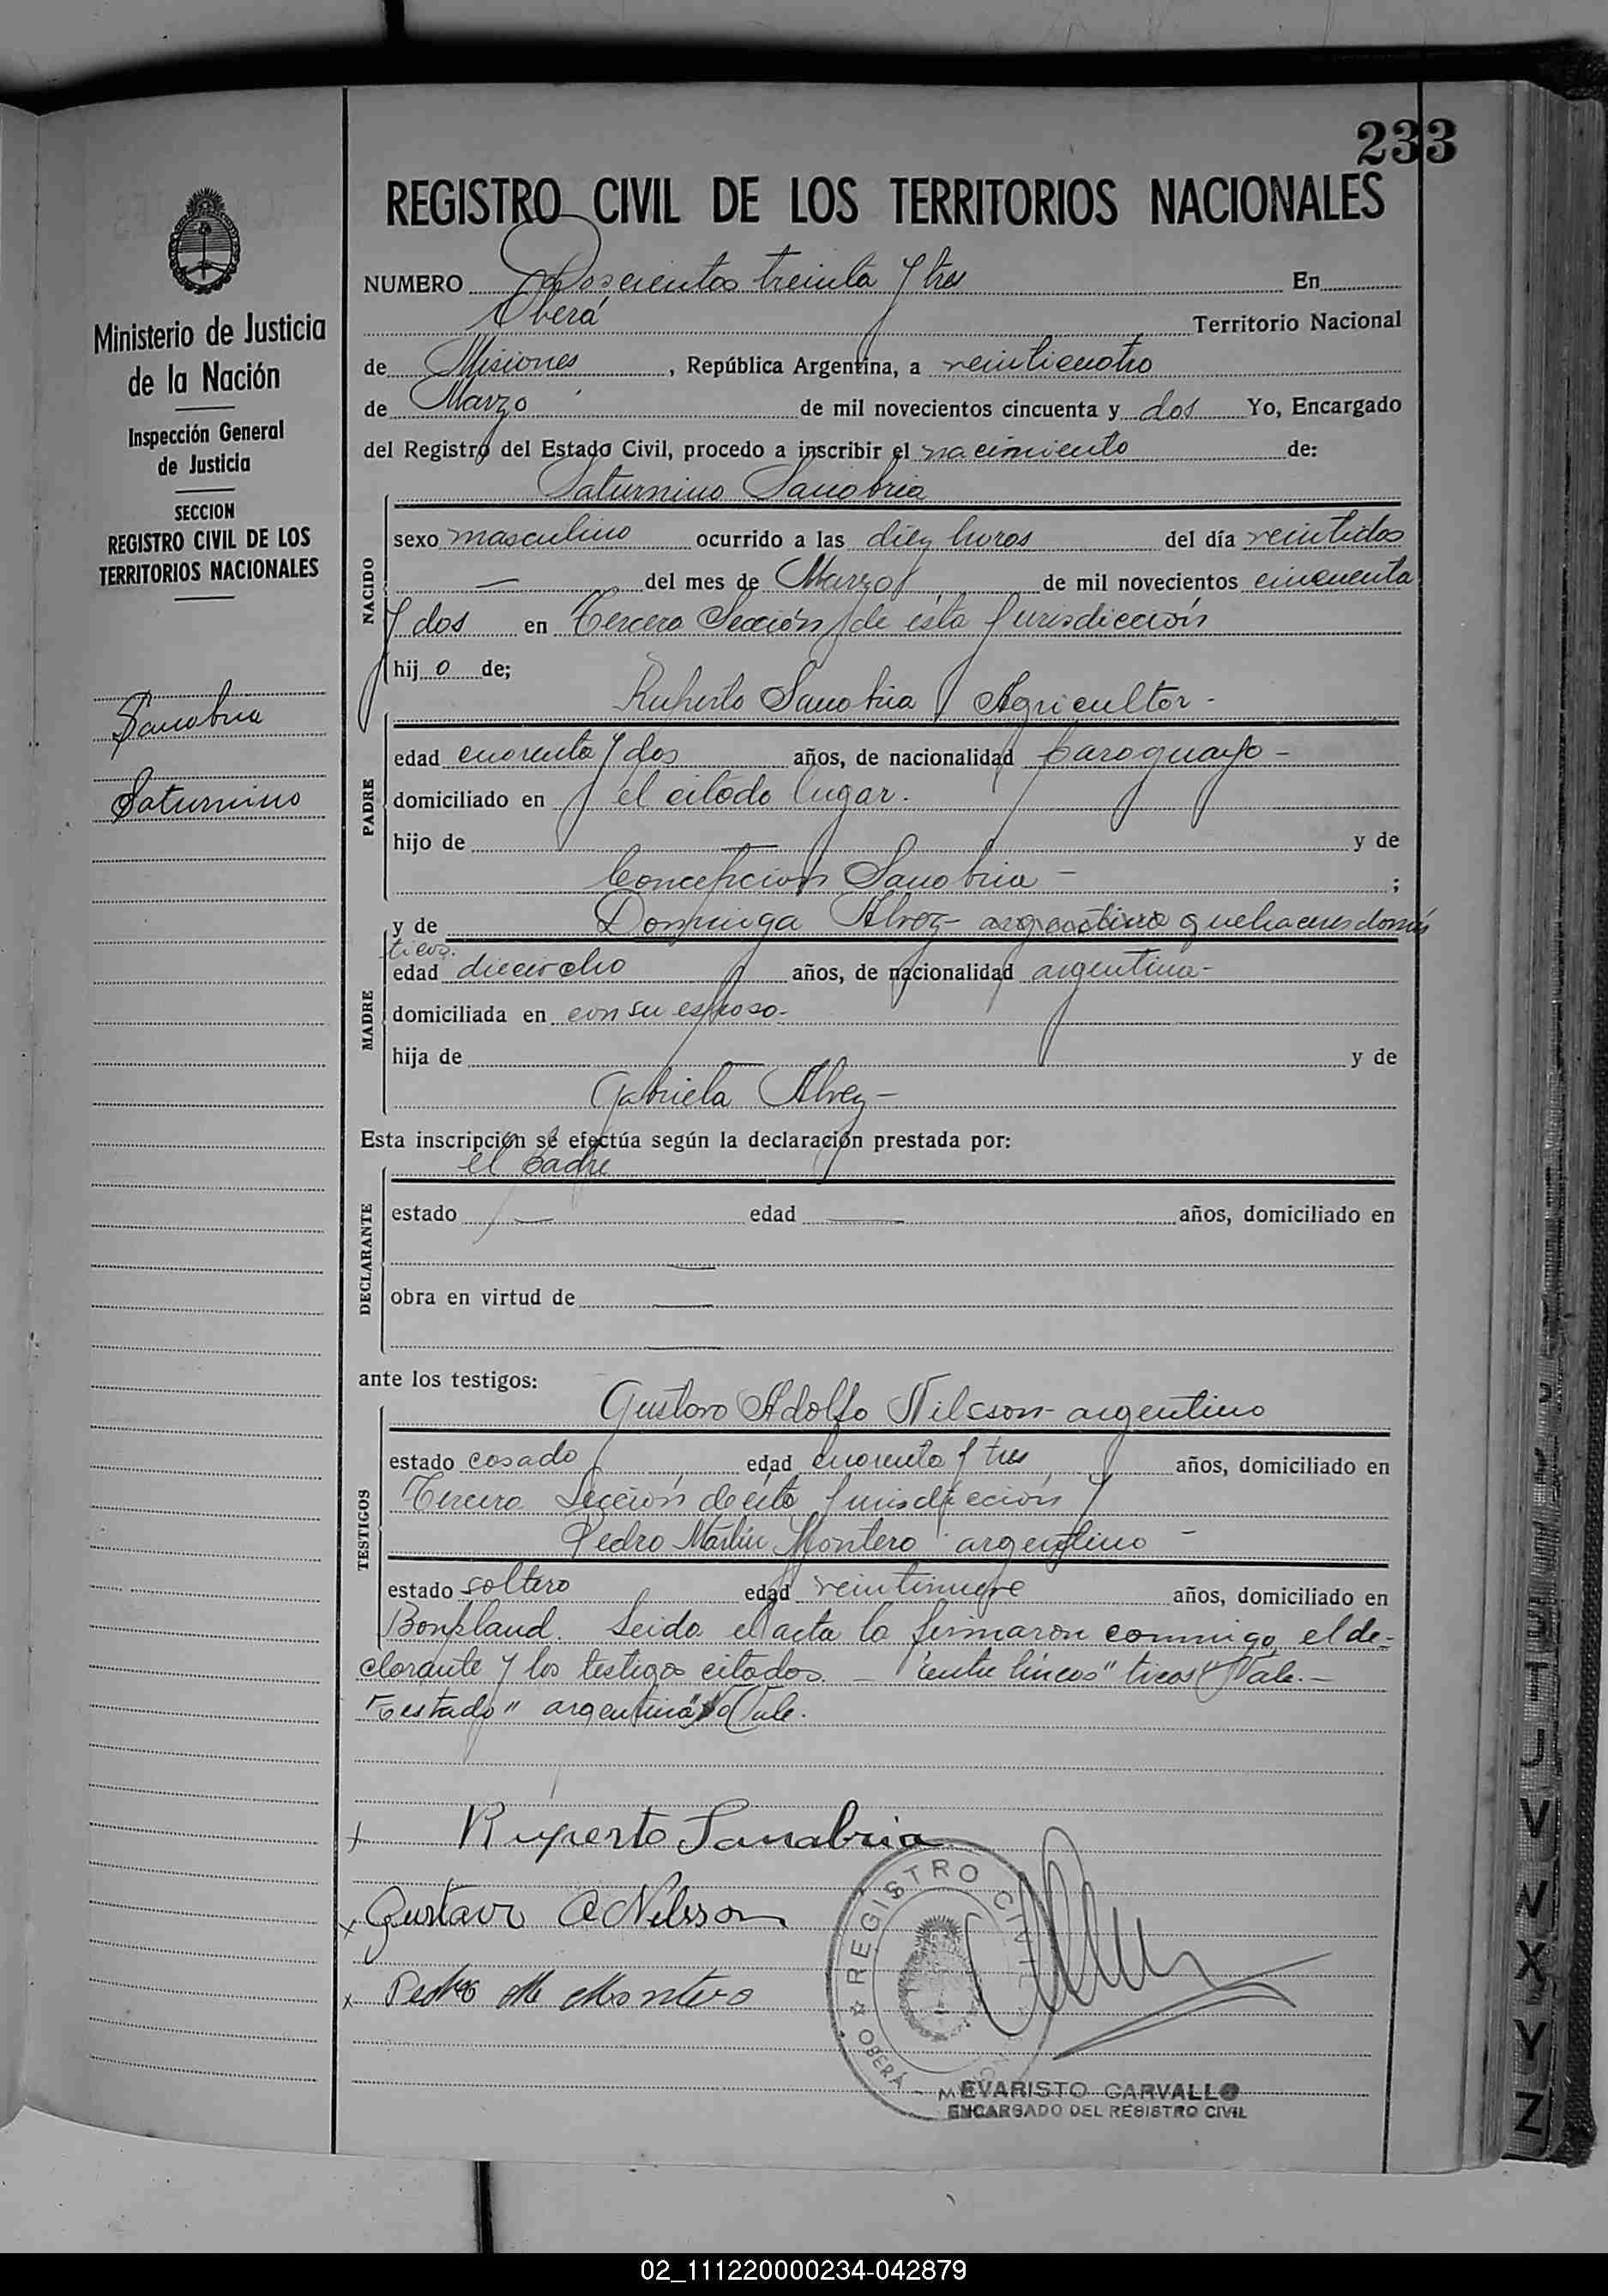 233
REGISTRO CIVIL DE LOS TERRITORIOS NACIONALES
Ministerio de Justicia
de la Nación
Inspección General
de Justicia
SECCION
REGISTRO CIVIL DE LOS
TERRITORIOS NACIONALES
Sanobria
Saturnino
NUMERO Doscientos treinta y tres En
Oberá Territorio Nacional
de Misiones, República Argentina, a veinticuatro
de Marzo de mil novecientos cincuenta y dos Yo, Encargado
del Registro del Estado Civil, procedo a inscribir el nacimiento de:
Saturnino Sanobria
NACIDO
sexo masculino ocurrido a las diez horas del día veintidos
— del mes de Marzo de mil novecientos cincuenta
y dos en Tercera Sección de esta Jurisdicción
hij o de;
Ruperto Sanobria Agricultor -
PADRE
edad cuarenta y dos años, de nacionalidad paraguayo -
domiciliado en el citado lugar.
hijo de — y de
Concepcion Sanobria - ;
y de Dominga Alvez - argentina quehaceres domés
ticos.
MADRE
edad dieciocho años, de nacionalidad argentina -
domiciliada en con su esposo -
hija de — y de
Gabriela Alvez -
Esta inscripción se efectúa según la declaración prestada por:
el padre
DECLARANTE
estado — edad — años, domiciliado en
—
obra en virtud de —
—
ante los testigos:
Gustavo Adolfo Nilsson - argentino
TESTIGOS
estado casado edad cuarenta y tres años, domiciliado en
Tercera Sección de esta Jurisdicción y
Pedro Martin Montero argentino -
estado soltero edad veintinueve años, domiciliado en
Bonpland. Leida el acta la firmaron conmigo el de-
clarante y los testigos citados. — "entre lineas" ticos" Vale. -
"Testado" argentina" No Vale.
Ruperto Sanabria
Gustavo A Nilsson
Pedro M Montero
REGISTRO CIVIL
OBERÁ
EVARISTO CARVALLO
ENCARGADO DEL REGISTRO CIVIL
U
V
W
X
Y
Z
02_111220000234-042879